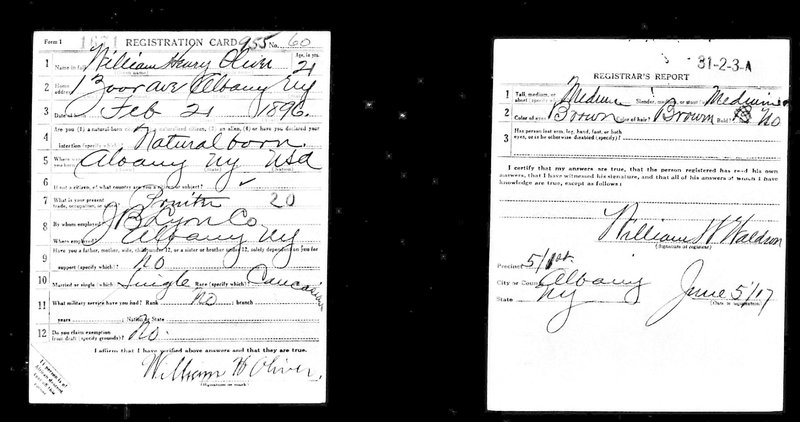 Form 1 REGISTRATION CARD 955 No. 60
1 Name in full William Henry Oliver Age, in yrs. 21
2 Home address Ave Albany Ny
3 Date of birth Feb 21 1896
4 Are you (1) a natural-born citizen, (2) a naturalized citizen, (3) an alien, (4) or have you declared your
intention (specify which)? Natural born
5 Where were you born? Albany Ny USA
6 If not a citizen, of what country are you a citizen or subject?
7 What is your present trade, occupation, or office? 20
8 By whom employed? J B Lyon Co
Where employed? Albany Ny
9 Have you a father, mother, wife, child under 12, or a sister or brother under 12, solely dependent on you for
support (specify which)? No
10 Married or single (which)? Single Race (specify which)? Caucasian
11 What military service have you had? Rank no ; branch
years ; Nation or State
12 Do you claim exemption from draft (specify grounds)? No
I affirm that I have verified above answers and that they are true.
William H Oliver
(Signature or mark)
If person is of African descent
31-2-3-A
REGISTRAR'S REPORT
1 Tall, medium, or short (specify which)? Medium Slender, medium, or stout (which)? Medium
2 Color of eyes? Brown Color of hair? Brown Bald? No
3 Has person lost arm, leg, hand, foot, or both
eyes, or is he otherwise disabled (specify)?
I certify that my answers are true, that the person registered has read his own
answers, that I have witnessed his signature, and that all of his answers of which I have
knowledge are true, except as follows:
William H Waldron
(Signature of registrar)
Precinct 5/1st
City or County Albany
State Ny June 5/17
(Date of registration)